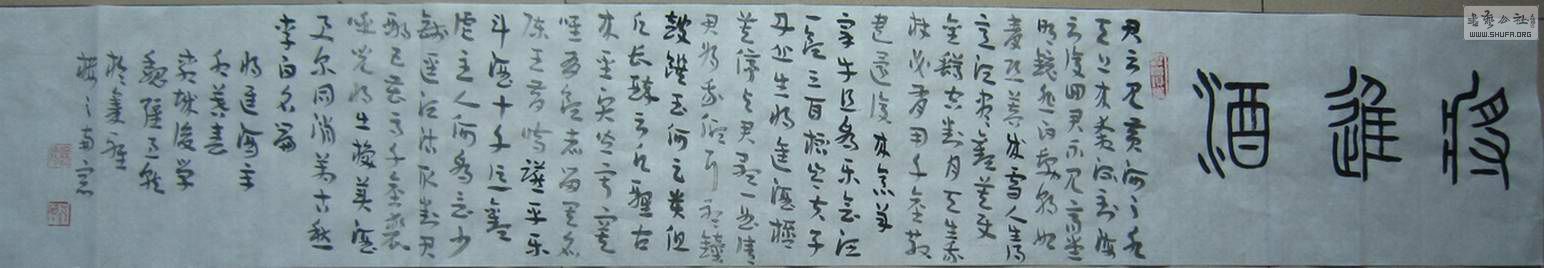 将進酒
君不見黄河之水
天上来奔流到海
不復回君不見高堂
明鏡悲白髮朝如
青絲暮成雪人生得
意須盡歡莫使
金樽空對月天生我
材必有用千金散
盡還復来烹羊
宰牛且為樂會須
一飲三百杯岑夫子
丹丘生將進酒杯
莫停與君歌一曲請
君為我傾耳聽鐘
鼓饌玉何足貴但
願長醉不願醒古
来聖賢皆寂寞
惟有飲者留其名
陳王昔時讌平樂
斗酒十千恣歡
謔主人何為言少
錢徑須沽取對君
酌五花馬千金裘
呼兒將出換美酒
與爾同消萬古愁
李白名篇
將進酒
後學
之南窓
書藝公社
WWW.SHUFA.ORG